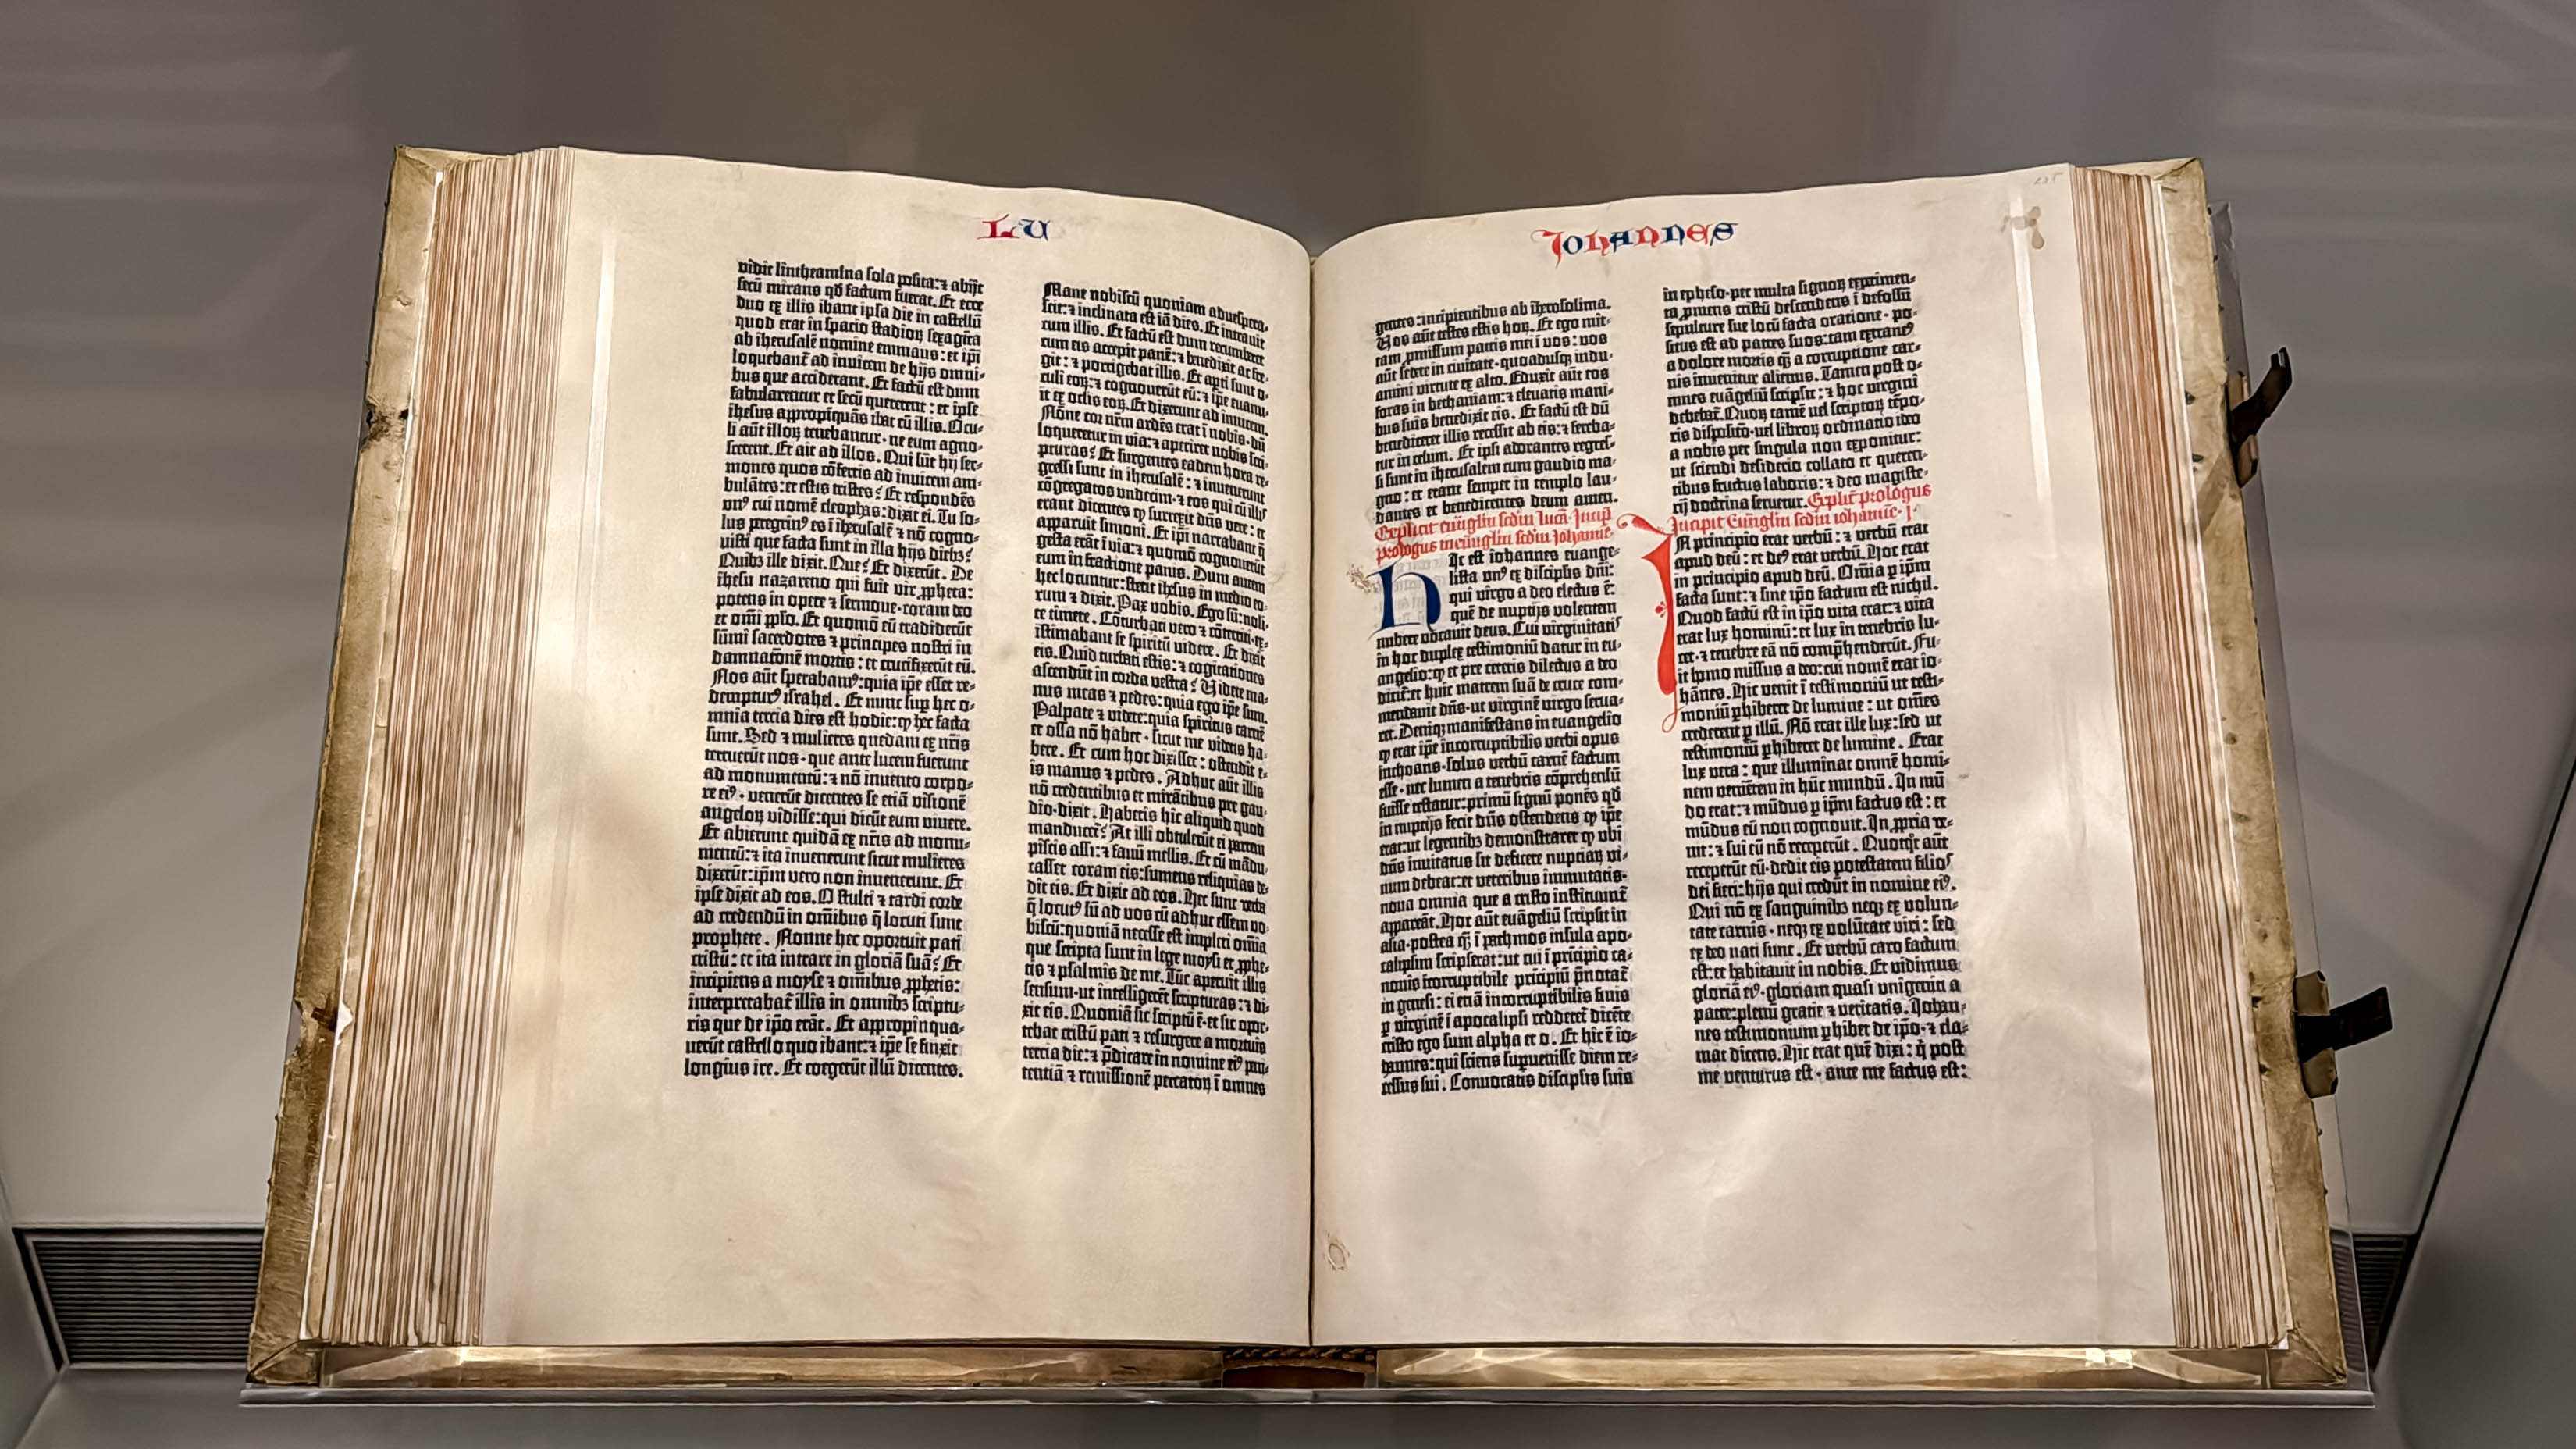 LU
vidit lintheamina sola posita: ⁊ abijt
secū mirans qd̄ factum fuerat. Et ecce
duo ex illis ibant ipsa die in castellū
quod erat in spacio stadioꝝ sexaginta
ab iherusalē nomine emmaus: et ipi̅
loquebant̄ ad invicem de hijs omni-
bus que acciderant. Et factū est dum
fabularentur et secū quererent: et ipse
ihesus appropīquās ibat cū illis. Ocu-
li aūt illoꝝ tenebantur · ne eum agno-
scerent. Et ait ad illos. Qui sūt hij ser-
mones quos cōfertis ad invicem am-
bulātes: et estis tristes? Et respondēs
unꝰ cui nomē cleophas: dixit ei. Tu so-
lus peregrinꝰ es ī iherusalē ⁊ nō cogno-
visti que facta sunt in illa hijs diebꝫ?
Quibꝫ ille dixit. Que? Et dixerūt. De
ihesu nazareno qui fuit vir ꝓpheta:
potens in opere ⁊ sermone · coram deo
et om̄i pp̄lo. Et quomō eū tradiderūt
sūmi sacerdotes ⁊ principes nostri in
damnatōnē mortis: et crucifixerūt eū.
Nos aūt sperabamꝰ: quia ip̄e esset re-
dempturꝰ israhel. Et nunc suꝑ hec o-
mnia tercia dies est hodie: ꝙ hec facta
sunt. Sed ⁊ mulieres quedam ex nr̄is
terruerūt nos · que ante lucem fuerunt
ad monumentū: ⁊ nō invento corpo-
re eiꝰ · venerūt dicentes se etiā visionē
angeloꝝ vidisse: qui dicūt eum vivere.
Et abierunt quidā ex nr̄is ad monu-
mentū: ⁊ ita invenerunt sicut mulieres
dixerūt: ip̄m vero non invenerunt. Et
ipse dixit ad eos. O stulti ⁊ tardi corde
ad credendū in om̄ibus q̄ locuti sunt
prophete. Nonne hec oportuit pati
cristū: et ita intrare in gloriā suā? Et
incipiens a moyse ⁊ om̄ibus ꝓphetis:
interpretabat̄ illis in omnibꝫ scriptu-
ris que de ip̄o erāt. Et appropinqua-
verūt castello quo ibant: ⁊ ip̄e se finxit
longius ire. Et coegerūt illū dicentes.
Mane nobiscū quoniam advespera-
scit: ⁊ inclinata est iā dies. Et intravit
cum illis. Et factū est dum recumberet
cum eis accepit panē: ⁊ benedixit ac fre-
git: ⁊ porrigebat illis. Et apti sunt o-
culi eoꝝ: ⁊ cognoverūt eū: ⁊ ip̄e evanu-
it ex oclis eoꝝ. Et dixerunt ad invicem.
Nōne cor nr̄m ardēs erat ī nobis · dū
loqueretur in via: ⁊ aperiret nobis scri-
pturas? Et surgentes eadem hora re-
gressi sunt in iherusalē: ⁊ invenerunt
cōgregatos undecim · ⁊ eos qui cū illis
erant dicentes ꝙ surrexit dn̄s vere: et
apparuit simoni. Et ip̄i narrabant q̄
gesta erāt ī via: ⁊ quomō cognoverūt
eum in fractione panis. Dum autem
hec locuntur: stetit ihesus in medio eo-
rum ⁊ dixit. Pax vobis. Ego sū: noli-
te timere. Cōturbati vero ⁊ cōterriti ex-
istimabant se spiritū videre. Et dixit
eis. Quid turbati estis: ⁊ cogitationes
ascendūt in corda vestra? Videte ma-
nus meas ⁊ pedes: quia ego ip̄e sum.
Palpate ⁊ videte: quia spiritus carnē
et ossa nō habet · sicut me videtis ha-
bere. Et cum hoc dixisset: ostendit e-
is manus ⁊ pedes. Adhuc aūt illis
nō credentibus et mirātibus pre gau-
dio · dixit. Habetis hic aliquid quod
manducet̄? At illi obtulerūt ei partem
piscis assi: ⁊ favū mellis. Et cū mādu-
casset coram eis: sumens reliquias de-
dit eis. Et dixit ad eos. Hec sunt verba
q̄ locutꝰ sū ad vos cū adhuc essem vo-
biscū: quoniā necesse est impleri om̄ia
que scripta sunt in lege moysi et ꝓphe-
tis ⁊ psalmis de me. Tūc aperuit illis
sensum · ut intelligerēt scripturas: ⁊ di-
xit eis. Quoniā sic scriptū ē · et sic opor-
tebat cristū pati ⁊ resurgere a mortuis
tercia die: ⁊ p̄dicare in nomine eiꝰ peni-
tentiā ⁊ remissionē peccatoꝝ ī omnes
Johannes
gentes: incipientibus ab iherosolima.
Vos aūt testes estis hoꝝ. Et ego mit-
tam ꝓmissum patris mei ī vos: vos
aūt sedete in civitate · quoadusqꝫ indu-
amini virtute ex alto. Eduxit aūt eos
foras in bethaniam: ⁊ elevatis mani-
bus suis benedixit eis. Et factū est dū
benediceret illis recessit ab eis: ⁊ fereba-
tur in celum. Et ipsi adorantes regres-
si sunt in iherusalem cum gaudio ma-
gno: et erant semper in templo lau-
dantes et benedicentes deum amen.
Explicit euāgliū scd̄m lucā. Incipit
prologus in euāgliū scd̄m Johannē.
Hic est iohannes euange-
lista unꝰ ex discipl̄is dn̄i:
qui virgo a deo electus ē:
quē de nuptijs volentem
nubere vocavit deus. Cui virginitatis
in hoc duplex testimoniū datur in eu-
angelio: ꝙ et pre ceteris dilectus a deo
dicit̄: et huic matrem suā de cruce com-
mendavit dn̄s · ut virginē virgo serva-
ret. Deniqꝫ manifestans in euangelio
ꝙ erat ip̄e incorruptibilis verbi opus
inchoans · solus verbū carnē factum
esse · nec lumen a tenebris cōprehensū
fuisse testatur: primū signū ponēs qd̄
in nuptijs fecit dn̄s ostendens ꝙ ip̄e
erat: ut legentibꝫ demonstraret ꝙ ubi
dn̄s invitatus sit deficere nuptiaꝝ vi-
num debeat: et veteribus immutatis ·
nova omnia que a cristo instituunt̄
appareāt. Hoc aūt euāgeliū scripsit in
asia · postea qꝫ ī pathmos insula apo-
calipsim scripserat: ut cui ī pricipio ca-
nonis īcorruptibile pricipiū p̄notat̄
in genesi: ei etiā incorruptibilis finis
ꝑ virginē ī apocalipsi redderet̄ dicēte
cristo ego sum alpha et o. Et hic ē io-
hannes: qui sciens supervenisse diem re-
cessus sui. Convocatis discipl̄is suis
in epheso · per multa signoꝝ experimen-
ta ꝓmens cristū descendens ī defossū
sepulture sue locū facta oratione · po-
situs est ad patres suos: tam extraneꝰ
a dolore mortis q̄ a corruptione car-
nis invenitur alienus. Tamen post o-
mnes euāgeliū scripsit: ⁊ hoc virgini
debebat̄. Quoꝝ tamē vel scriptoꝝ tēpo-
ris disposito · vel libroꝝ ordinatio ideo
a nobis per singula non exponitur:
ut sciendi desiderio collato et queren-
tibus fructus laboris: ⁊ deo magiste-
rij doctrina servetur. Explic̄ prologus
Incipit Euāgliū scd̄m iohannē. I
In principio erat verbū: ⁊ verbū erat
apud deū: et deꝰ erat verbū. Hoc erat
in principio apud deū. Om̄ia ꝑ ip̄m
facta sunt: ⁊ sine ip̄o factum est nichil.
Quod factū est in ip̄o vita erat: ⁊ vita
erat lux hominū: et lux in tenebris lu-
cet · ⁊ tenebre eā nō comp̄henderūt. Fu-
it homo missus a deo: cui nomē erat io-
hānes. Hic venit ī testimoniū ut testi-
moniū ꝑhiberet de lumine: ut om̄es
crederent ꝑ illū. Nō erat ille lux: sed ut
testimoniū ꝑhiberet de lumine. Erat
lux vera: que illuminat omnē homi-
nem venientem in hūc mundū. In mū-
do erat: ⁊ mūdus ꝑ ip̄m factus est: et
mūdus eū non cognovit. In ꝓpria ve-
nit: ⁊ sui eū nō receperūt. Quotqt̄ aūt
receperūt eū · dedit eis potestatem filios
dei fieri: hijs qui credūt in nomine eiꝰ.
Qui nō ex sanguinibꝫ neqꝫ ex volun-
tate carnis · neqꝫ ex volūtate viri: sed
ex deo nati sunt. Et verbū caro factum
est: et habitavit in nobis. Et vidimus
gloriā eiꝰ · gloriam quasi unigeniti a
patre: plenū gratie ⁊ veritatis. Johan-
nes testimonium ꝑhibet de ip̄o · ⁊ cla-
mat dicens. Hic erat quē dixi: q̄ post
me venturus est · ante me factus est: